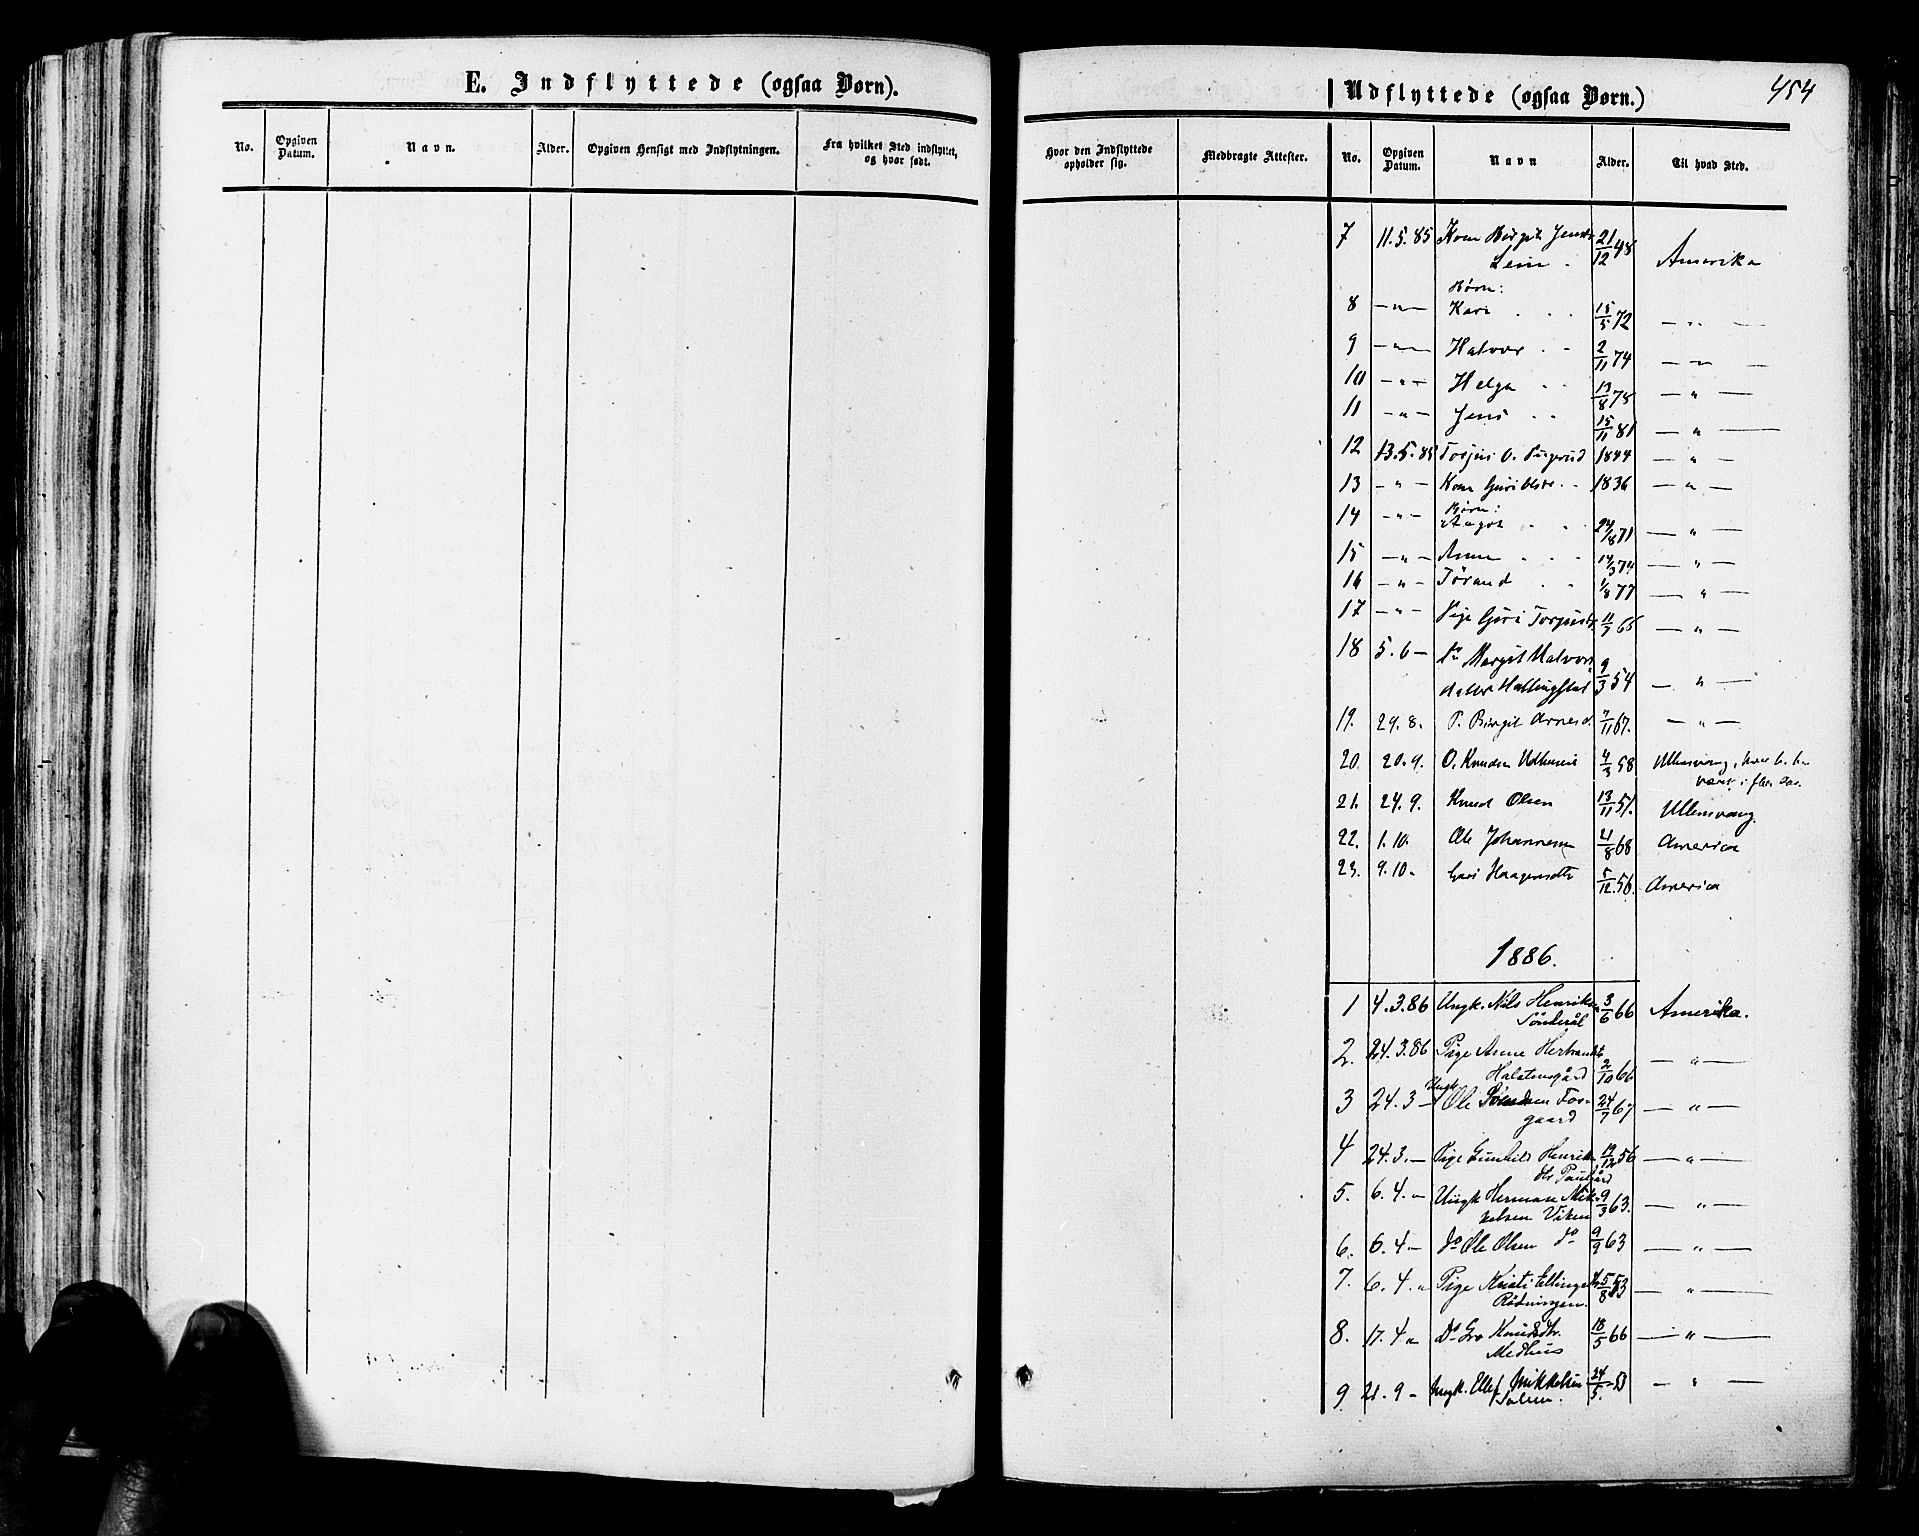 E. Indflyttede (ogsaa Børn).
No.
Opgiven Datum.
Navn.
Alder.
Opgiven Hensigt med Indflytningen.
Fra hvilket Sted indflyttet, og hvor født.
Udflyttede (ogsaa Børn.)
454
Hvor den Indflyttede opholder sig.
Medbragte Attester.
No.
Opgiven Datum.
Navn
Alder.
Til hvad Sted.
7 11.5.85 Kone Birgit Jensdr 21/12 48
Lein Amerika
Børn:
8 —"— Kari 15/5 72 —"—
9 —"— Halvor 2/11 74 —"—
10 —"— Helga 13/8 78 —"—
11 —"— Jens 15/11 81 —"—
12 13.5.85 Torjus O. 1844 —"—
13 —"— Kone Guri Olsdr 1836 —"—
Børn:
14 —"— Aagot 24/8 71 —"—
15 —"— Anne 14/3 74 —"—
16 —"— Tørand 1/8 77 —"—
17 —"— Pige Guri Torjusdr 11/7 66 —"—
18 5.6 — Do Margit Halvors
datter Hallingstad 9/3 54 —"—
19. 29.8. P. Birgit Arnesd. 7/11 67. —"—
20. 20.9. O. Knudsen Udhuus 4/3 58 Ullensvang, hvor h. har
været i flere Aar.
21. 24.9. Knud Olsen 13/11 51. Ullensvang.
22. 1.10. Ole Johannesen 4/8 68 America
23. 9.10. Guri Haagensdtr 5/12.56. America
1886.
1 4.3.86 Ungk. Nils Henriksen 3/6 66 Amerika.
Sønderål
2. 24.3.86 Pige Anne Herbrandsd
Halstensgård 2/10 66 —"—
3 24.3 — Ungk Ole Svendsen Fos-
gaard 24/7 67 —"—
4 24.3. — Pige Gunhild Henriks 12/12 56 —"—
dtr Paulgård
5. 6.4 — Ungk Herman Mik- 9/3 63. —"—
kelsen Viken
6. 6.4 — do Ole Olsen do 9/9 63 —"—
7. 6.4. " Pige Kristi Ellingsdtr 5/8 53 —"—
Rødningen.
8. 17.4 " Do Gro Knudsdtr. 18/5 66 —"—
Medhus
9. 21.9 — Ungk. Ellef Mikkelsen 24/5. 53 —"—